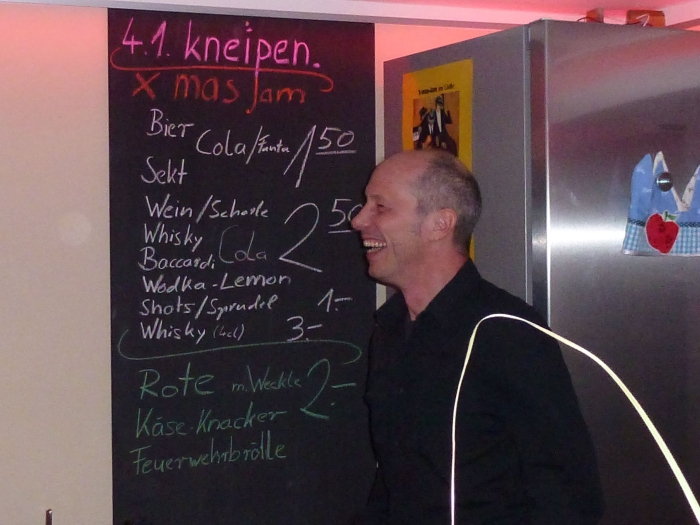 4.1. kneipen.
Xmas Jam
Bier
Cola/Fanta 1 50
Sekt
Wein/Schorle
Whisky
Baccardi Cola 2 50
Wodka-Lemon
Shots/Sprudel 1.-
Whisky (4cl) 3.-
Rote m. Weckle 2.-
Käse-Knacker
Feuerwehrbrölle